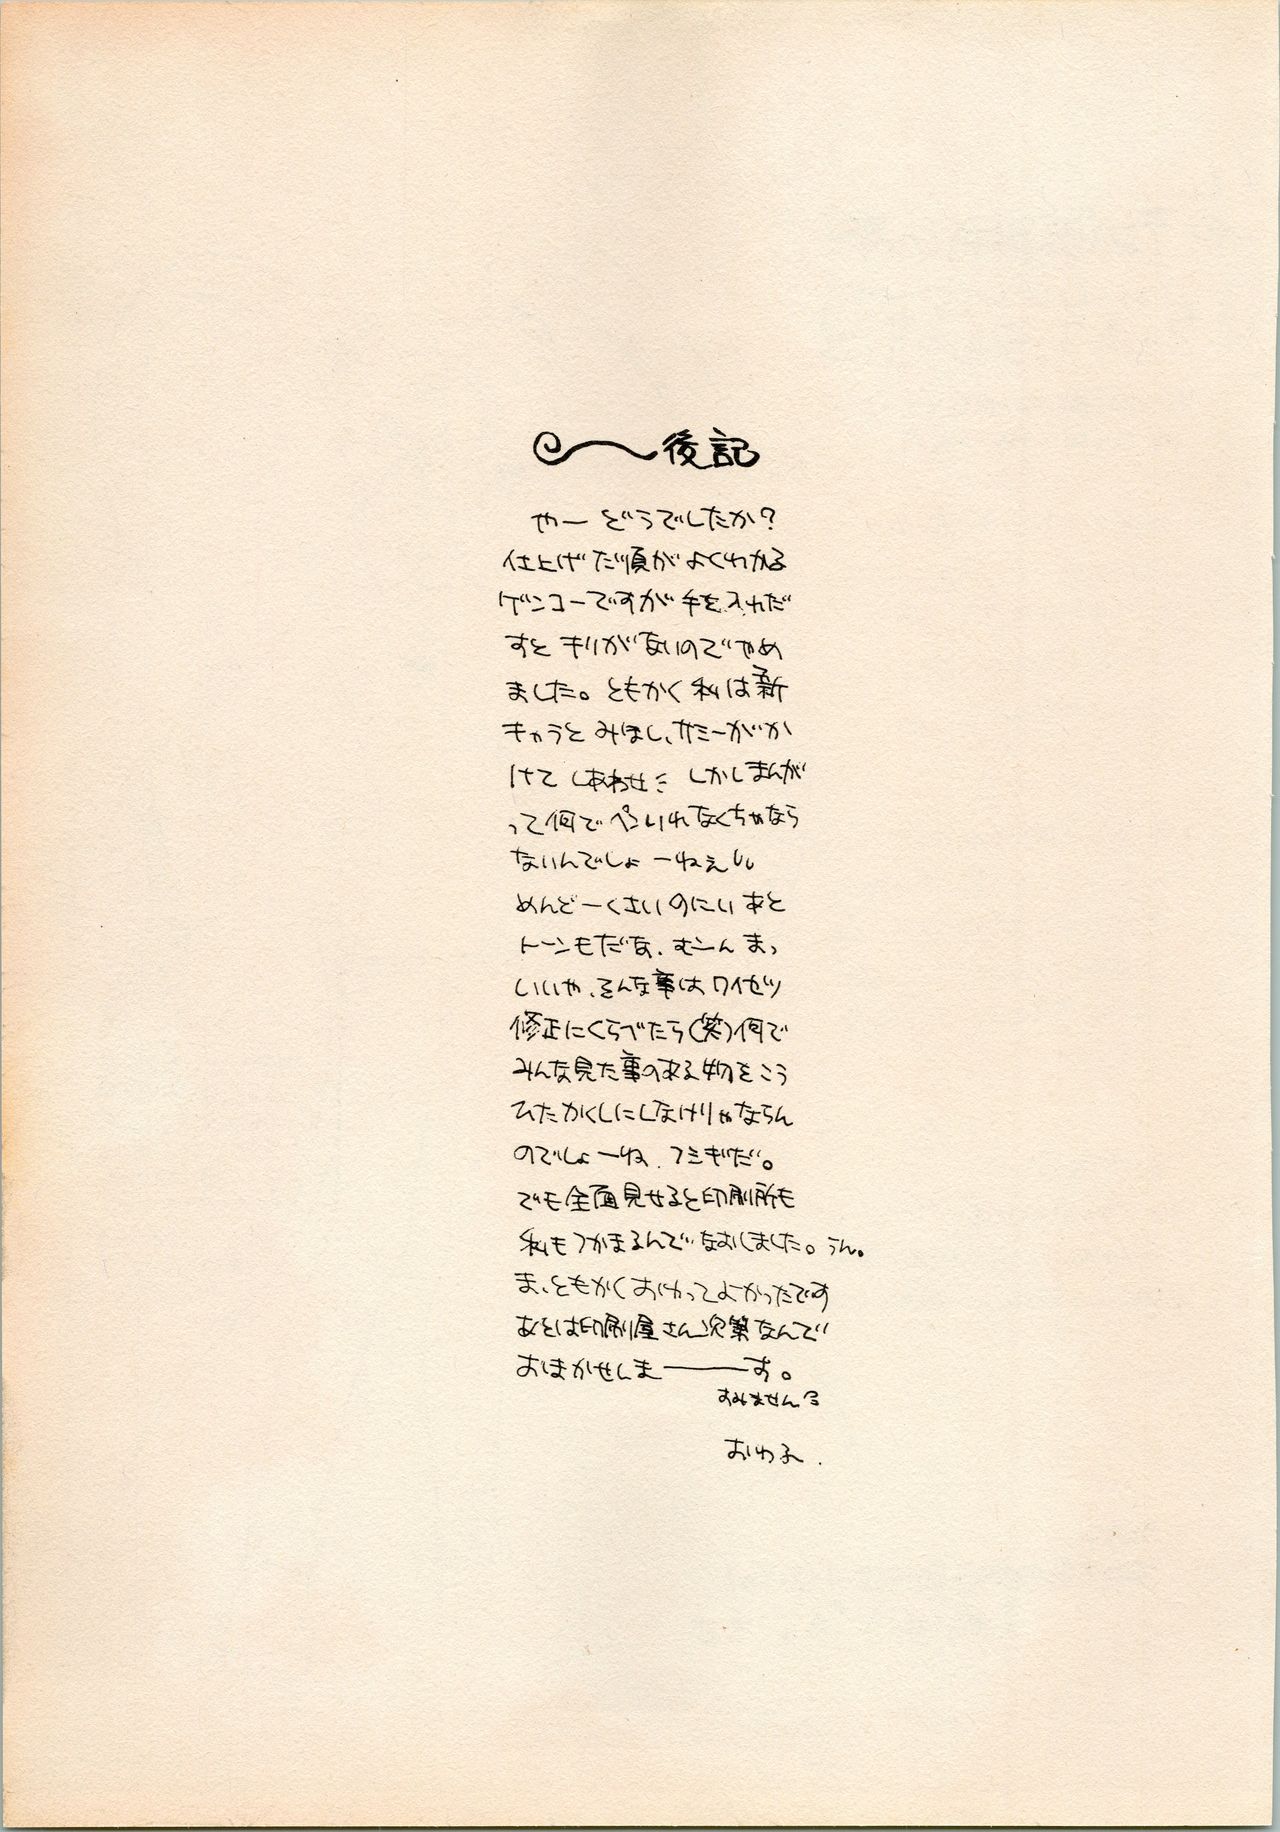 後記
やー どうでしたか?
仕上げた順がよくわかる
ゲンコーですが 手を入れだ
すと キリがないのでやめ
ました。ともかく 私は新
キャラと みほし、サミーがか
けて しあわせ ミ しかしまんが
って何で ペンいれなくちゃなら
ないんでしょーねぇ
めんどーくさいのにい あと
トーンもだな、むーん まっ
いいや、そんな事は ワイセツ
修正にくらべたら(笑)何で
みんな見た事のある物をこう
ひたかくしにしなけりゃならん
のでしょーね、フシギだ。
でも全面見せると印刷所も
私もつかまるんで なおしました。うん。
ま、ともかくおわってよかったです
あとは印刷屋さん次第なんで
おまかせしまーーーす。
すみません